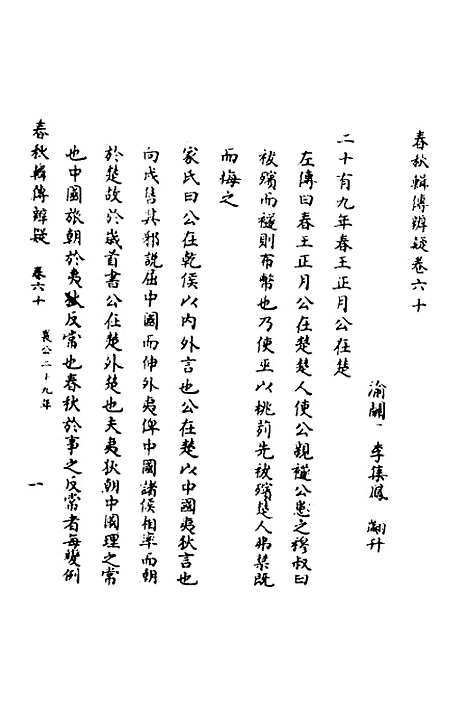 春秋輯傳辨疑卷六十
渝關 李集鳳 翽升
二十有九年春王正月公在楚
左傳曰春王正月公在楚楚人使公親襚公患之穆叔曰
祓殯而襚則布幣也乃使巫以桃茢先祓殯楚人弗禁既
而悔之
家氏曰公在乾侯以內外言也公在楚以中國夷狄言也
向戌售其邪說屈中國而伸外夷俾中國諸侯相率而朝
於楚故於歲首書公在楚外楚也夫夷狄朝中國理之常
也中國旅朝於夷狄反常也春秋於事之反常者每變例
春秋輯傳辨疑 卷六十 襄公二十九年 一